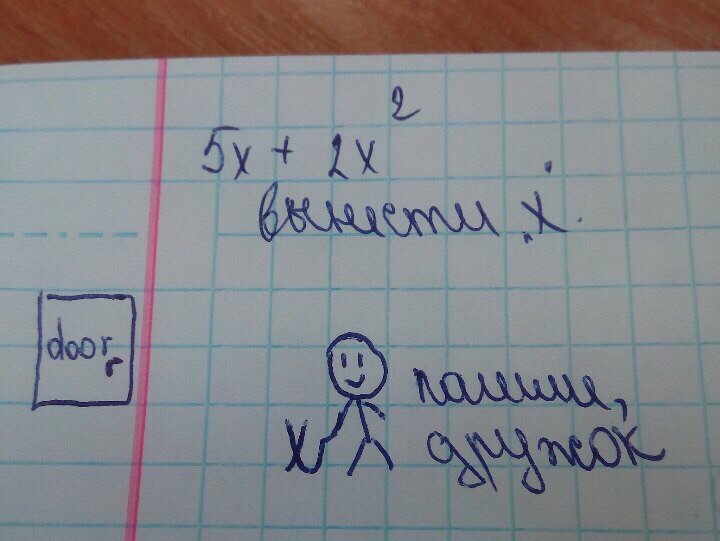 5x + 2x²
вынести x.
door
пошли,
дружок
x